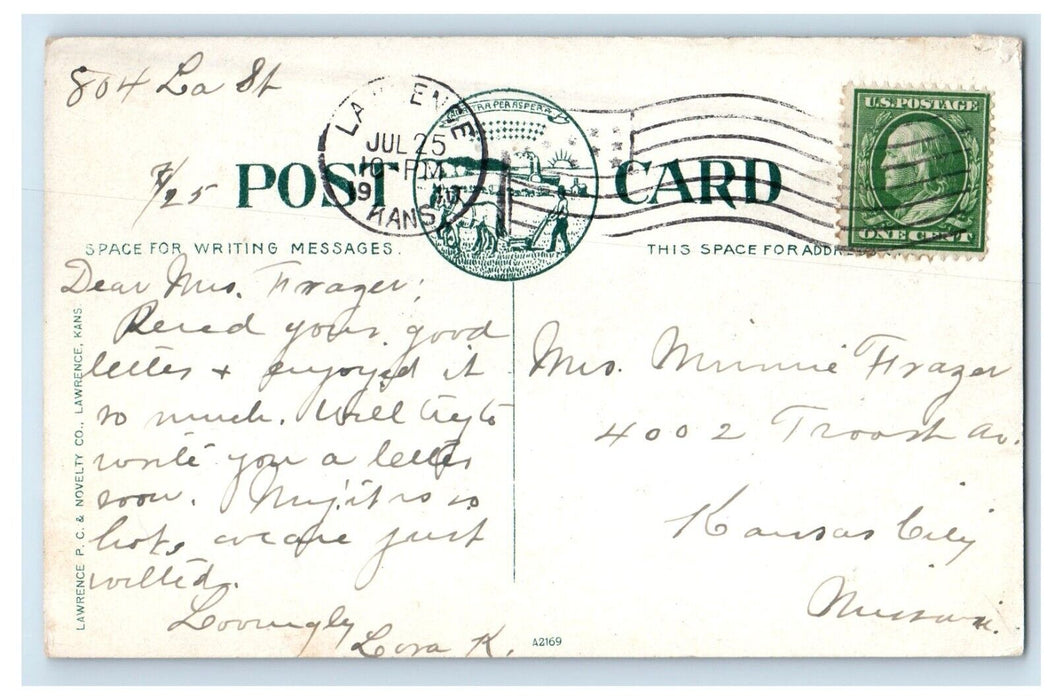 804 La St
7/25
POST CARD
LAWRENCE
JUL 25
10-PM
19
KANS.
U.S. POSTAGE
ONE CENT
SPACE FOR WRITING MESSAGES.
THIS SPACE FOR ADDRE
Dear Mrs. Frazer;
Recd your good
letter + enjoyed it
so much. Will try to
write you a letter
soon. My, it is so
hot, we are just
wilted.
Lovingly
Lora K.
Mrs. Minnie Frazer
4002 Troost Av.
Kansas City
Missouri.
LAWRENCE P. C. & NOVELTY CO., LAWRENCE, KANS
A2169